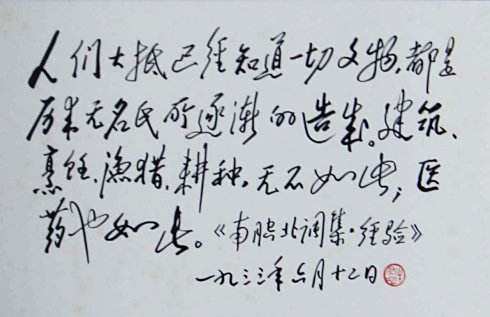 人们大抵已经知道一切文物，都是
历来无名氏所逐渐的造成。建筑、
烹饪、渔猎、耕种，无不如此；医
药也如此。《南腔北调集·经验》
一九三三年六月十二日